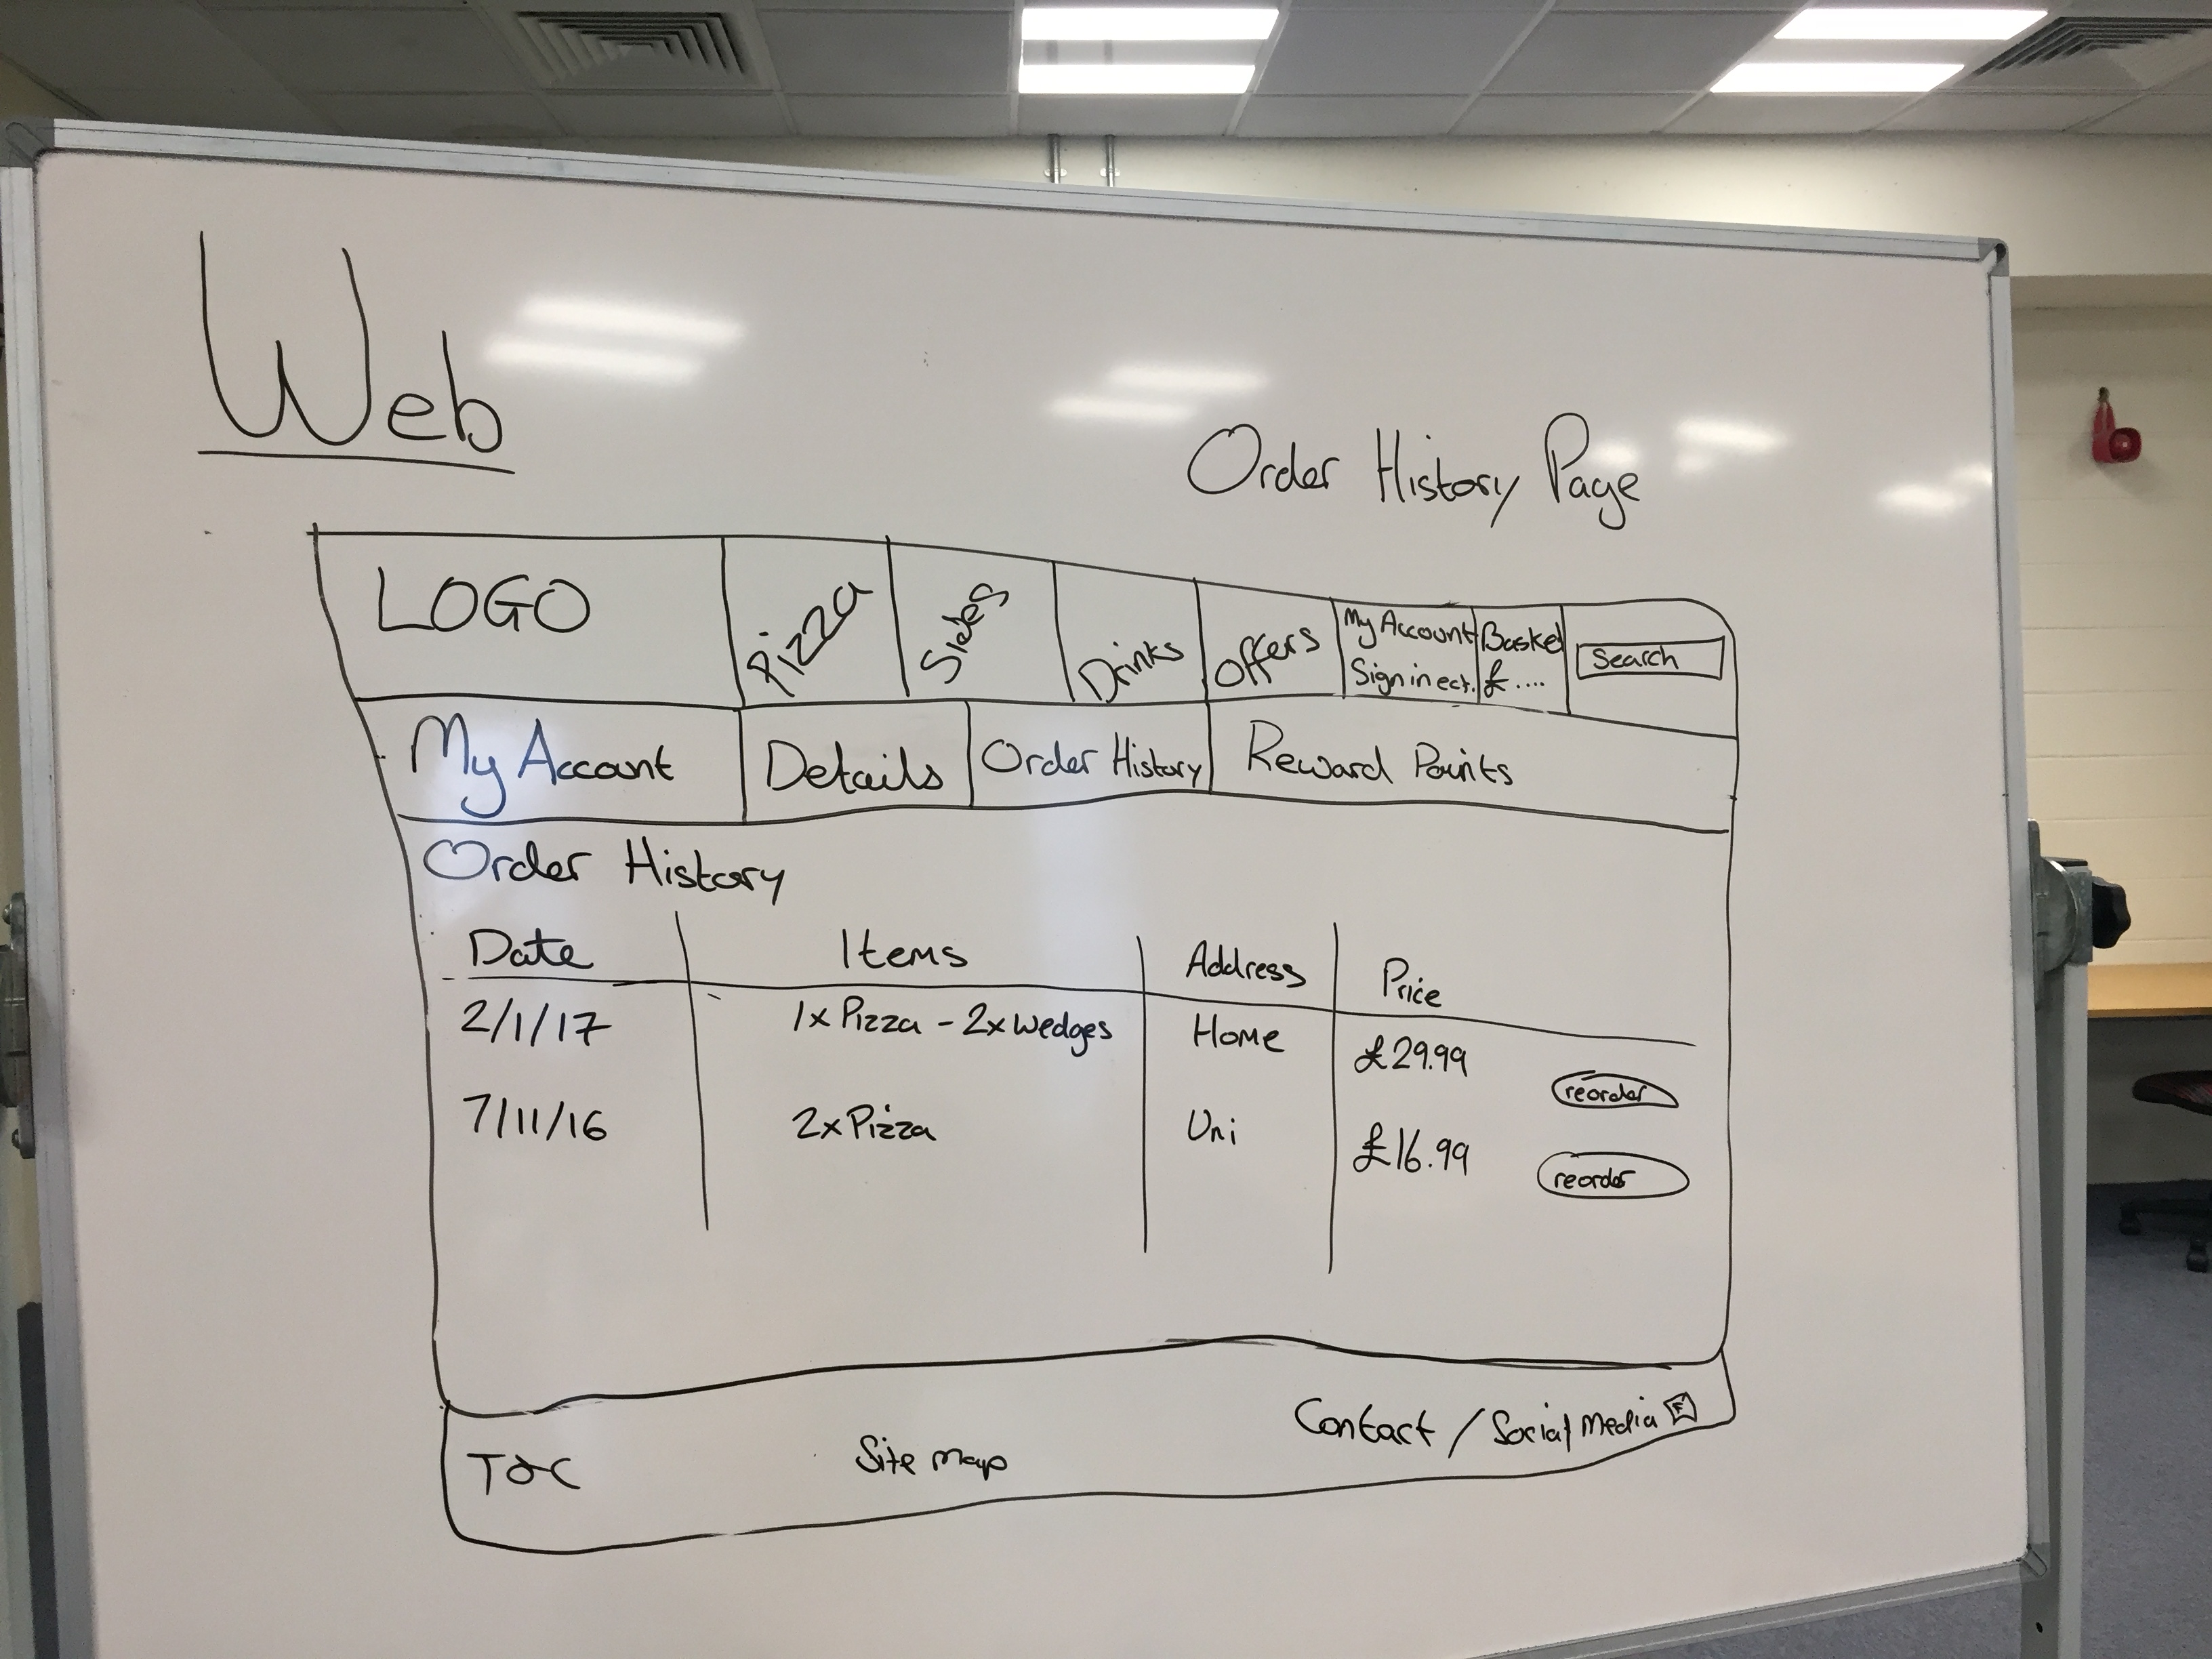 Web
Order History Page
LOGO Pizza Sides Drinks Offers My Account Sign in ect. Basket £.... Search
My Account Details Order History Reward Points
Order History
Date Items Address Price
2/1/17 1x Pizza - 2x Wedges Home £29.99 reorder
7/11/16 2x Pizza Uni £16.99 reorder
T&C Site Map Contact / Social Media F